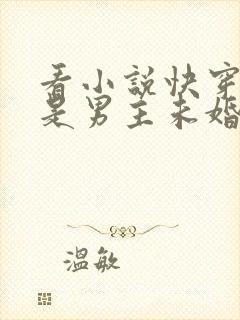 看小說快穿
是男主未婚
溫敏